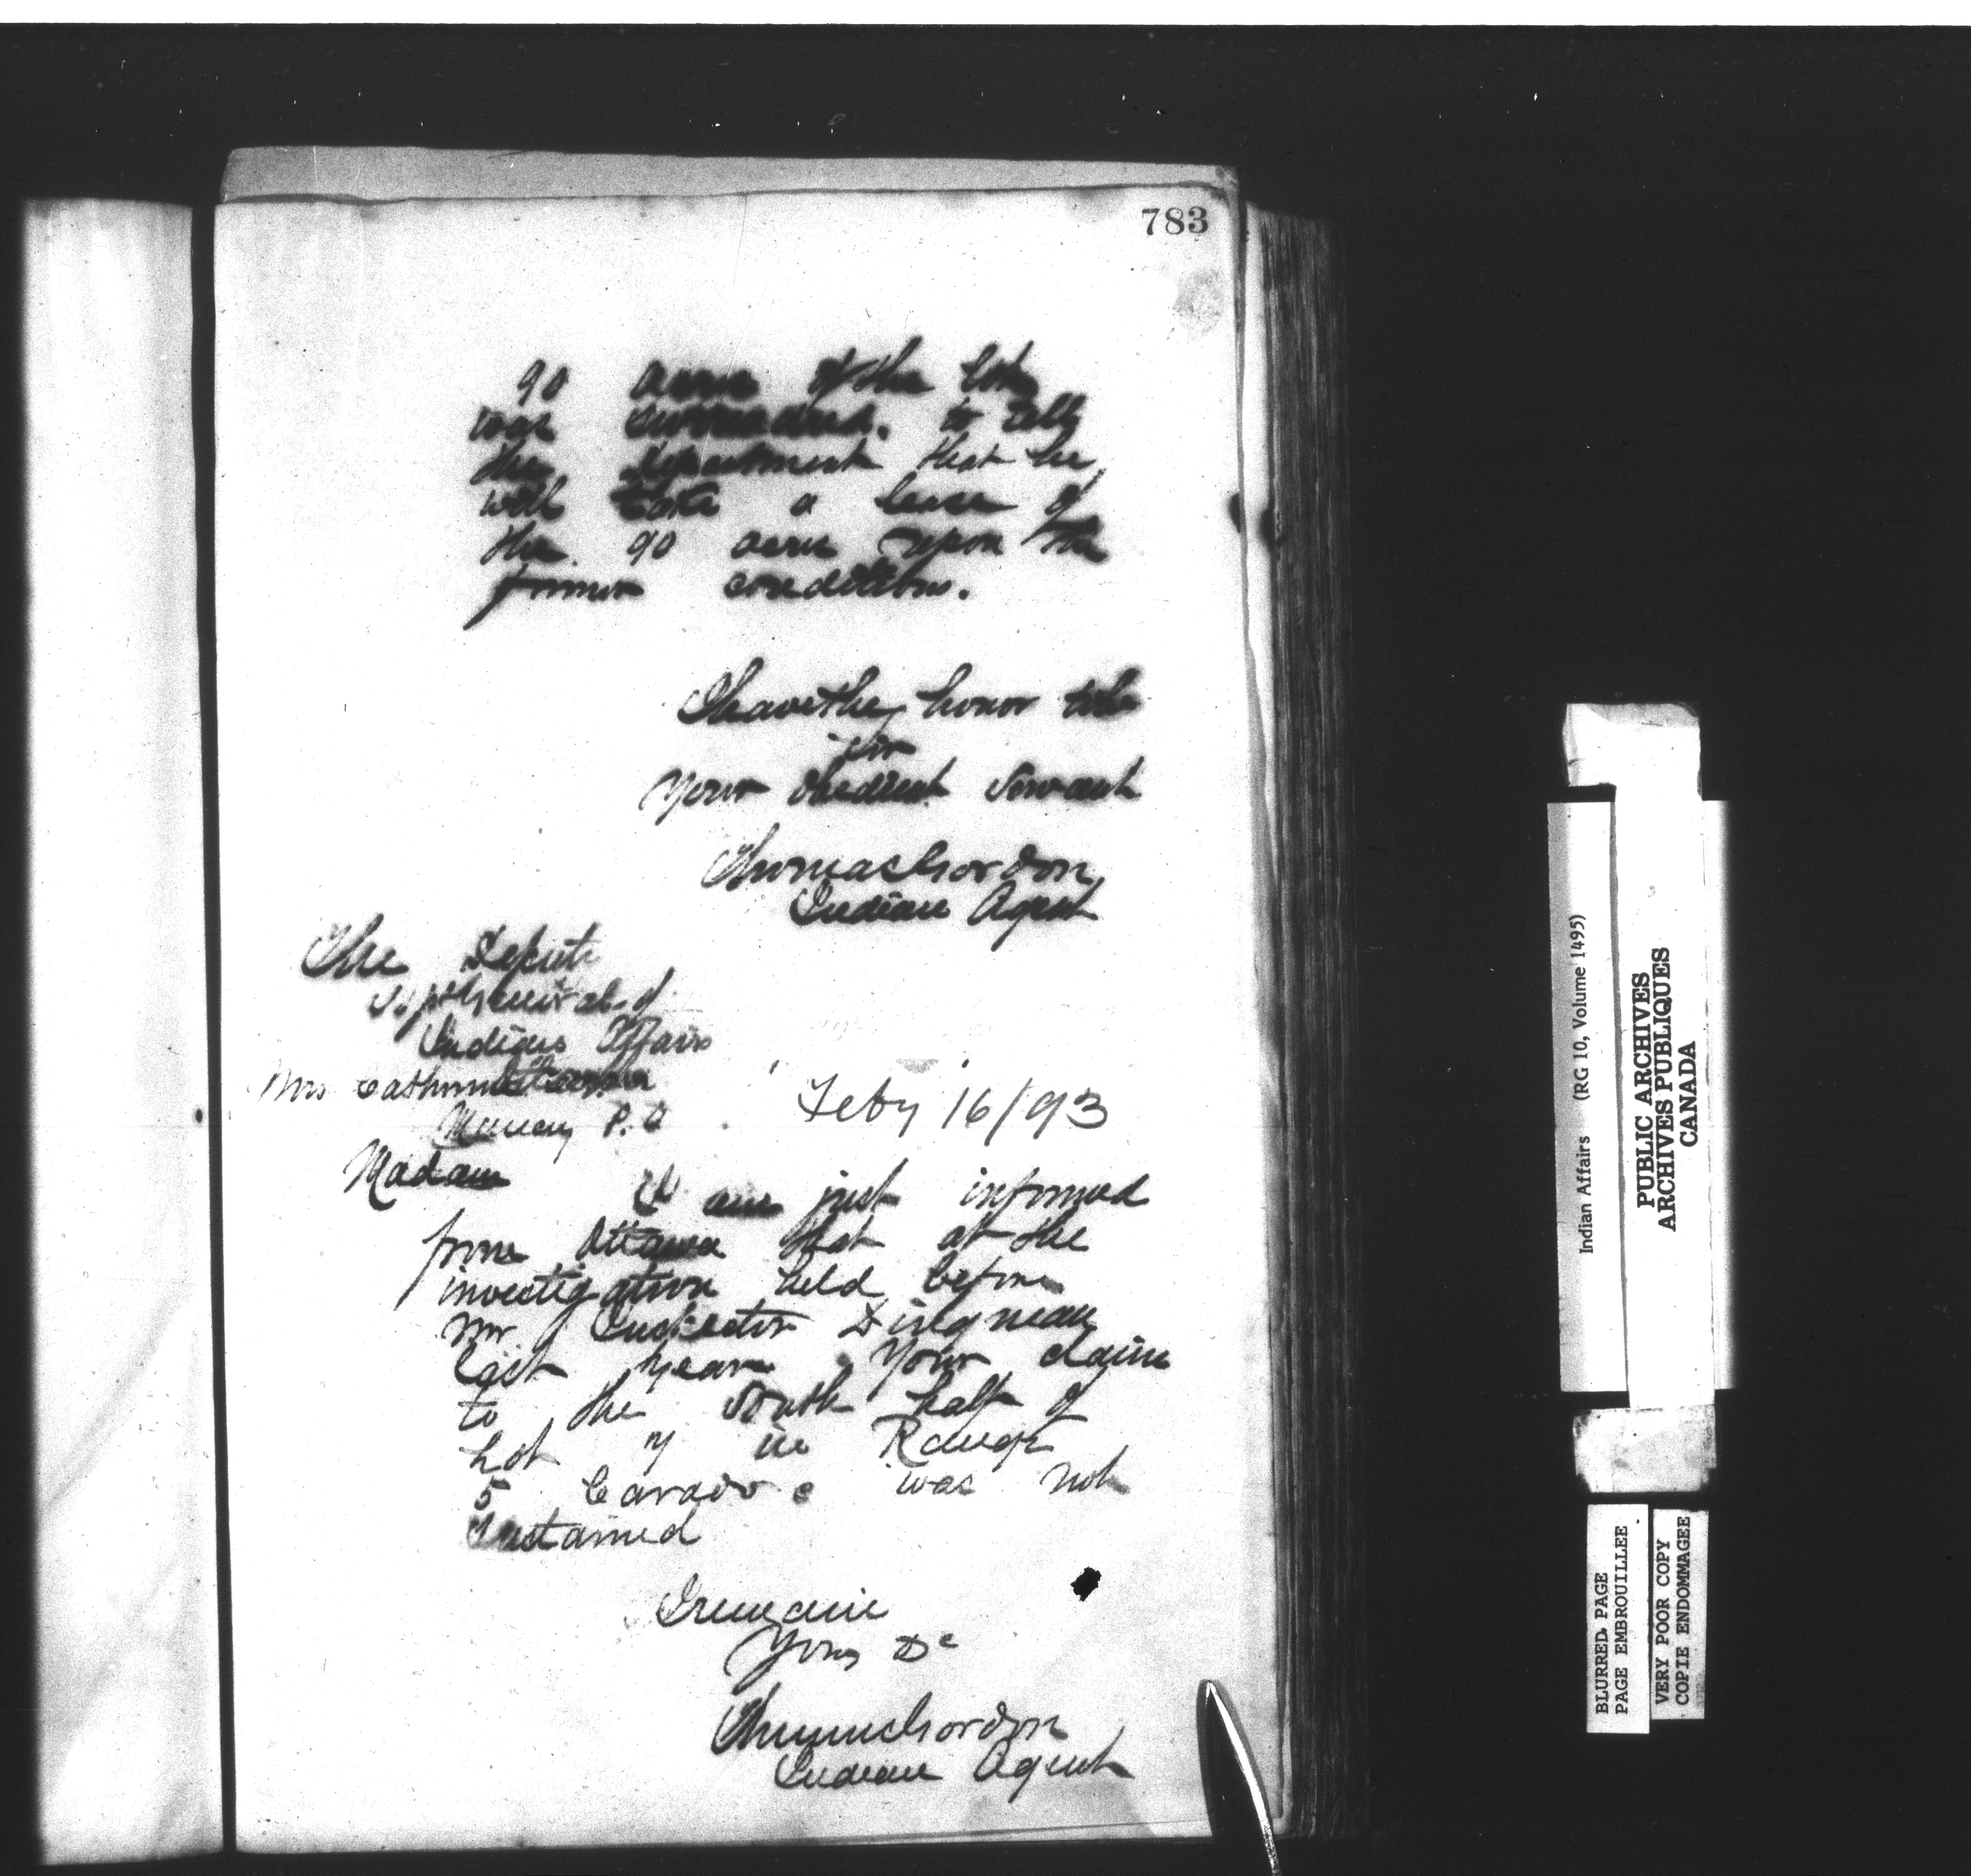 783
90 acres of the lot
was surrendered. to tell
the Department that he
will take a lease of
the 90 acres upon the
former conditions.
I have the honor to be
Sir
Your obedient Servant
Thomas Gordon
Indian Agent
The Deputy
Supt General of
Indian Affairs
Mrs Catherine
Muncey P.O
Feby 16/93
Madam
I am just informed
from Ottawa that at the
investigation held before
Mr Inspector Dingman
last year your claim
to the South half of
Lot in Range
5 Caradoc was not
Sustained
I remain
Yours &c
Thomas Gordon
Indian Agent
Indian Affairs (RG 10, Volume 1495)
PUBLIC ARCHIVES
ARCHIVES PUBLIQUES
CANADA
BLURRED PAGE
PAGE EMBROUILLEE
VERY POOR COPY
COPIE ENDOMMAGEE